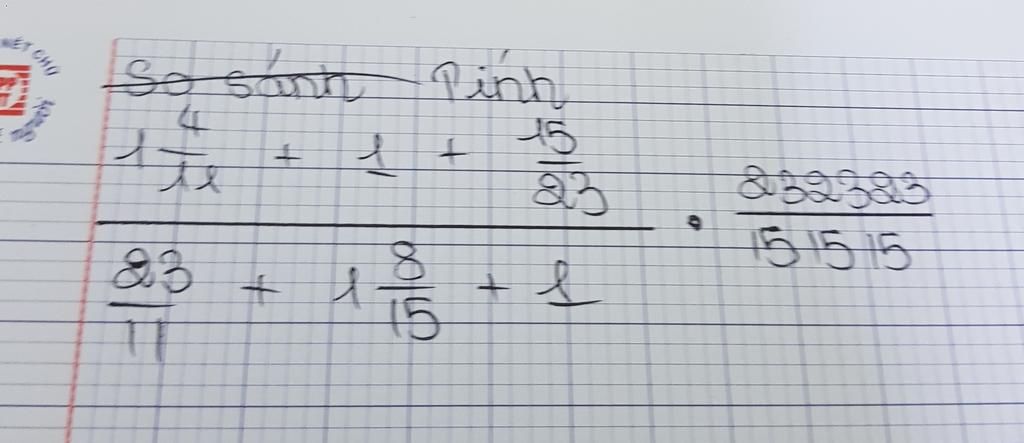 So sánh Pính
1 4/11 + 1 + 15/23
23/11 + 1 8/15 + 1
. 232323/151515